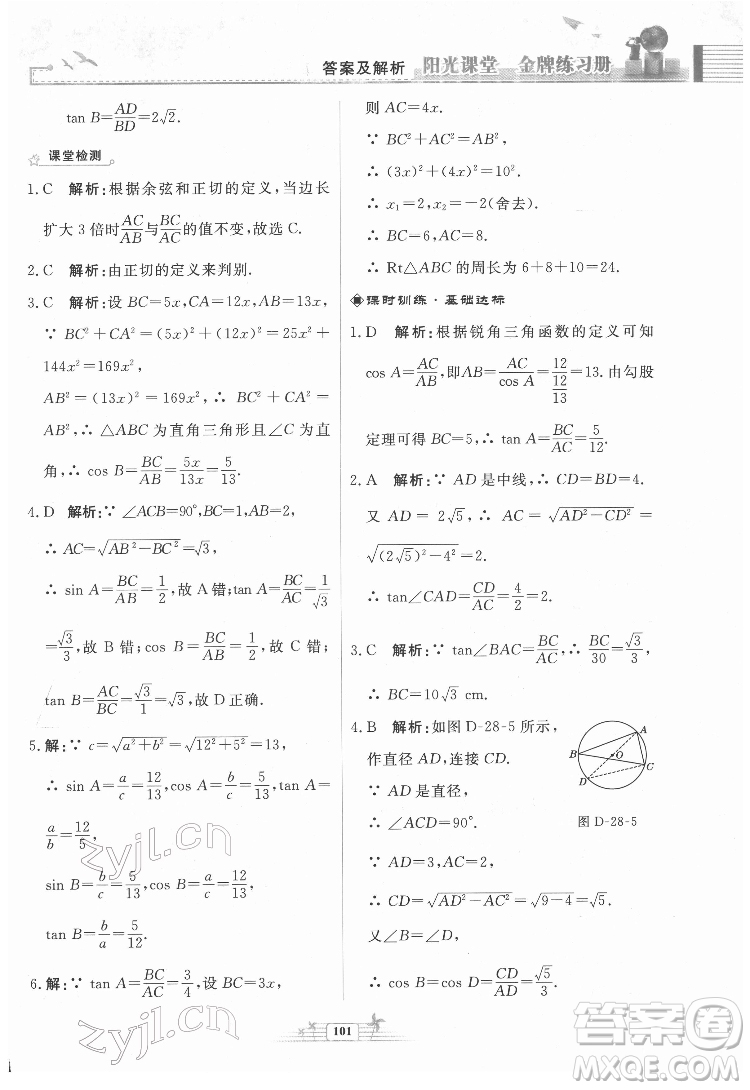 答案及解析 阳光课堂 金牌练习册
tan B=AD/BD=2√2.
课堂检测
1. C 解析:根据余弦和正切的定义,当边长
扩大 3 倍时AC/AB与BC/AC的值不变,故选 C.
2. C 解析:由正切的定义来判别.
3. C 解析:设 BC=5x,CA=12x,AB=13x,
∵ BC²+CA²=(5x)²+(12x)²=25x²+
144x²=169x²,
AB²=(13x)²=169x²,∴ BC²+CA²=
AB²,∴ △ABC 为直角三角形且∠C 为直
角,∴ cos B=BC/AB=5x/13x=5/13.
4. D 解析:∵ ∠ACB=90°,BC=1,AB=2,
∴ AC=√(AB²-BC²)=√3,
∴ sin A=BC/AB=1/2,故 A 错;tan A=BC/AC=1/√3
=√3/3,故 B 错;cos B=BC/AB=1/2,故 C 错;
tan B=AC/BC=√3/1=√3,故 D 正确.
5. 解:∵ c=√(a²+b²)=√(12²+5²)=13,
∴ sin A=a/c=12/13,cos A=b/c=5/13,tan A=
a/b=12/5,
sin B=b/c=5/13,cos B=a/c=12/13,
tan B=b/a=5/12.
6. 解:∵ tan A=BC/AC=3/4,设 BC=3x,
则 AC=4x.
∵ BC²+AC²=AB²,
∴ (3x)²+(4x)²=10²,
∴ x₁=2,x₂=-2(舍去).
∴ BC=6,AC=8.
∴ Rt△ABC 的周长为 6+8+10=24.
课时训练·基础达标
1. D 解析:根据锐角三角函数的定义可知
cos A=AC/AB,即AB=AC/cos A=12/(12/13)=13. 由勾股
定理可得 BC=5,∴ tan A=BC/AC=5/12.
2. A 解析:∵ AD 是中线,∴ CD=BD=4.
又 AD=2√5,∴ AC=√(AD²-CD²)=
√((2√5)²-4²)=2.
∴ tan∠CAD=CD/AC=4/2=2.
3. C 解析:∵ tan∠BAC=BC/AC,∴ BC/30=√3/3,
∴ BC=10√3 cm.
4. B 解析:如图 D-28-5 所示,
作直径 AD,连接 CD.
∵ AD 是直径,
∴ ∠ACD=90°.
∵ AD=3,AC=2,
∴ CD=√(AD²-AC²)=√(9-4)=√5.
又∠B=∠D,
∴ cos B=cos D=CD/AD=√5/3.
A
B
O
C
D
图 D-28-5
101
zyjl.cn
zyjl.cn
答案圈
MXQE.COM